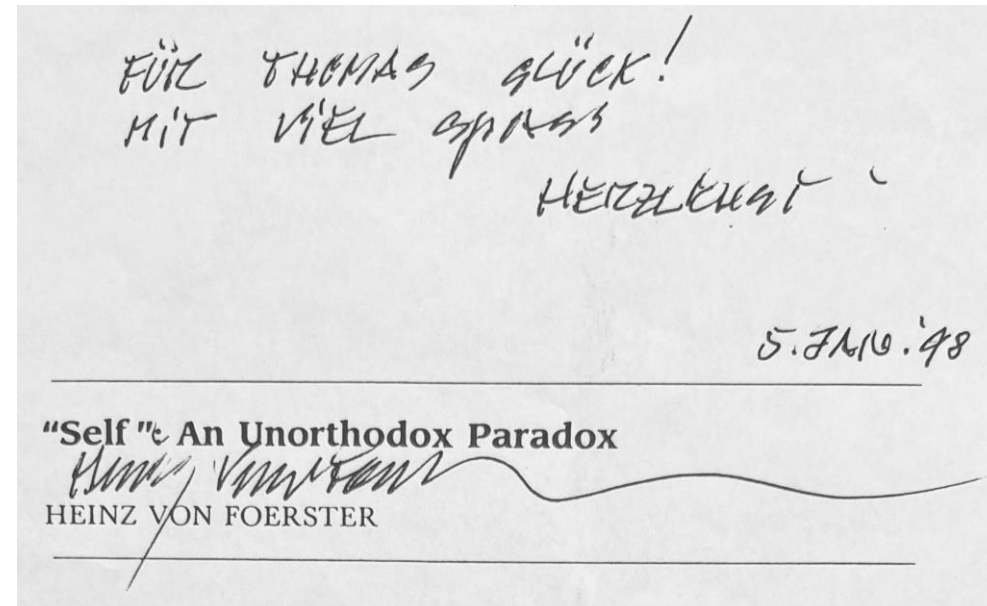 FÜR THOMAS GLÜCK!
MIT VIEL SPASS
HERZLICHST
5. JAN. '98
"Self": An Unorthodox Paradox
Heinz von Foerster
HEINZ VON FOERSTER